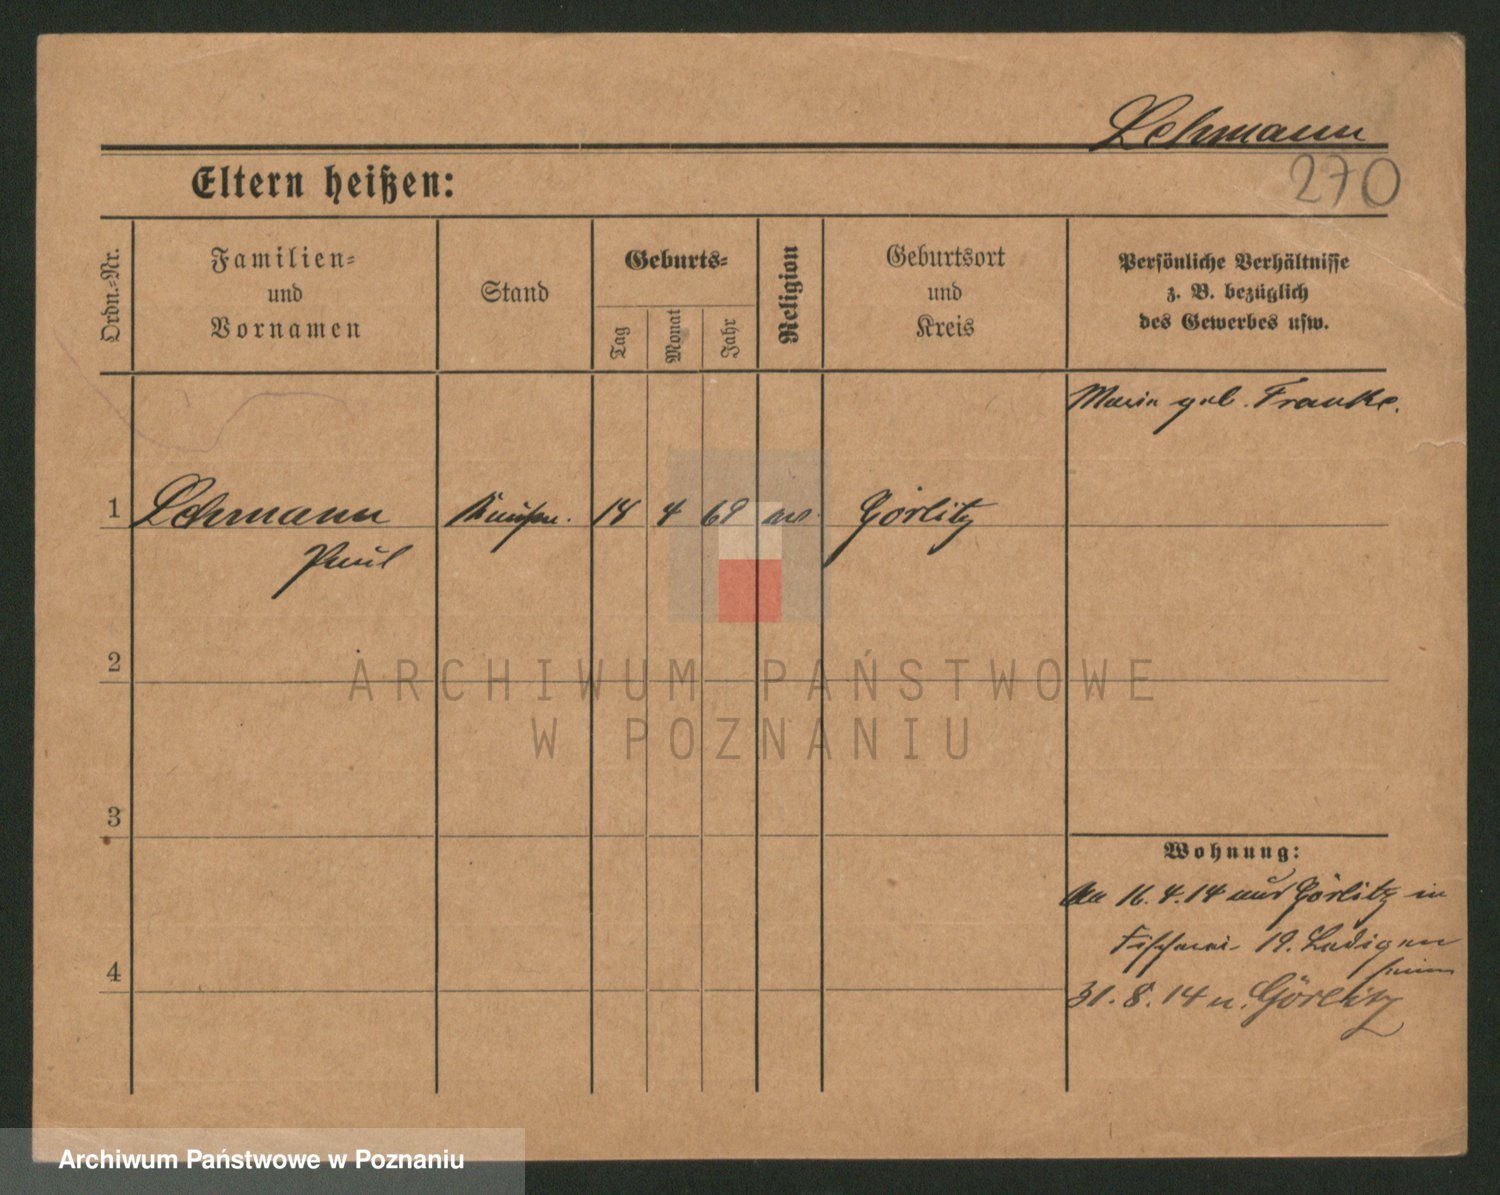 Lehmann
270
Eltern heißen:
Ordn.-Nr.
Familien-
und
Vornamen
Stand
Geburts-
Tag
Monat
Jahr
Religion
Geburtsort
und
Kreis
Persönliche Verhältnisse
z. B. bezüglich
des Gewerbes usw.
Maria geb. Franke.
1 Lehmann 18 4 69 ev. Görlitz
Paul
2
3
4
Wohnung:
An 16.4.14 aus Görlitz in
19. Ledigen
heim
31.8.14 n. Görlitz
ARCHIWUM PAŃSTWOWE
W POZNANIU
Archiwum Państwowe w Poznaniu